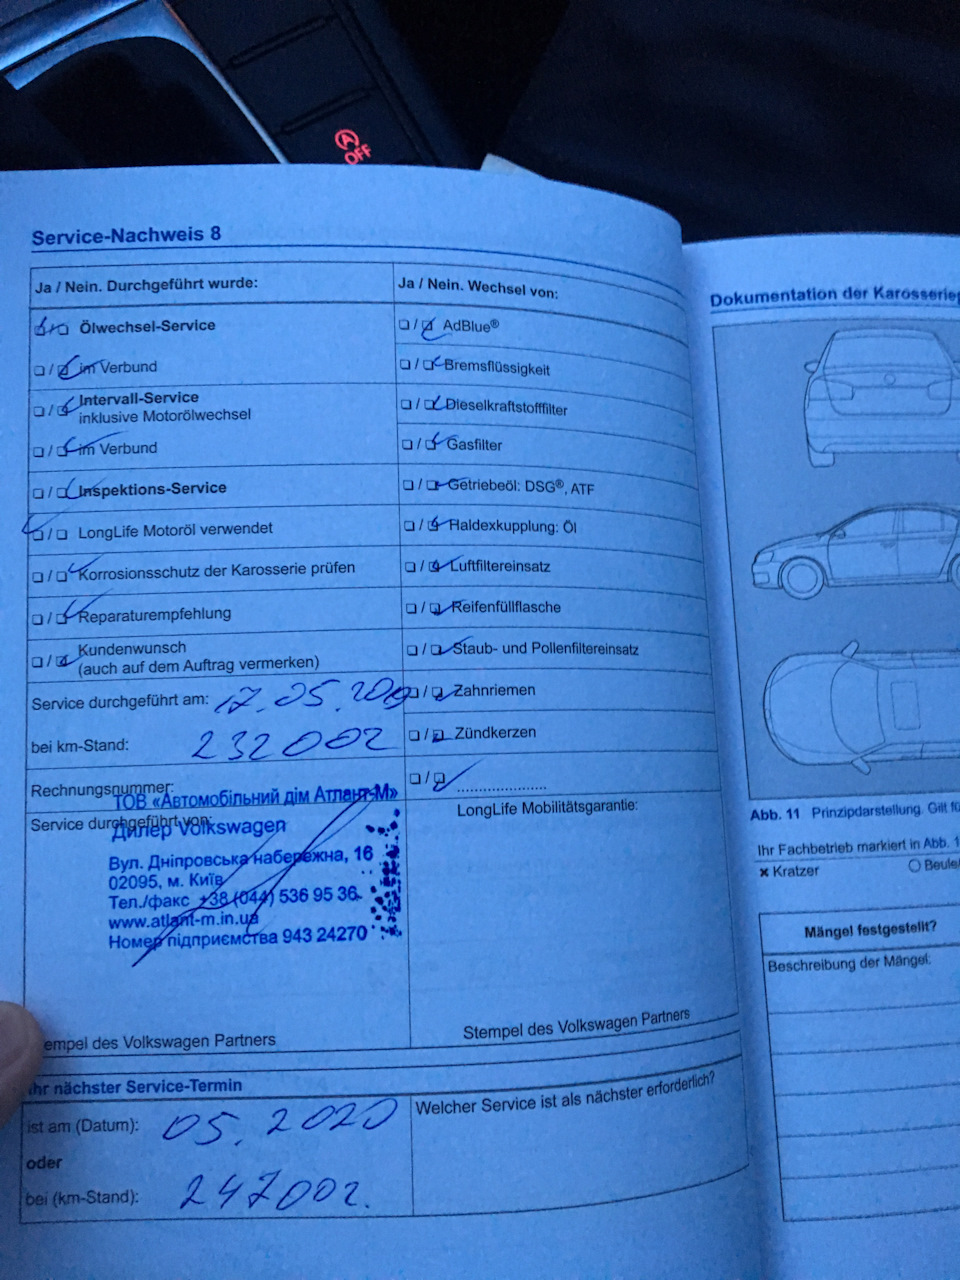 A
OFF
Service-Nachweis 8
Ja / Nein. Durchgeführt wurde:
Ölwechsel-Service
im Verbund
Intervall-Service
inklusive Motorölwechsel
im Verbund
Inspektions-Service
LongLife Motoröl verwendet
Korrosionsschutz der Karosserie prüfen
Reparaturempfehlung
Kundenwunsch
(auch auf dem Auftrag vermerken)
Service durchgeführt am: 17.05.
bei km-Stand: 232002
Rechnungsnummer:
Service durchgeführt von:
ТОВ «Автомобільний дім Атлант-М»
Дилер Volkswagen
Вул. Дніпровська набережна, 16
02095, м. Київ
Тел./факс +38 (044) 536 95 36
www.atlant-m.in.ua
Номер підприємства 943 24270
empel des Volkswagen Partners
Ja / Nein. Wechsel von:
AdBlue®
Bremsflüssigkeit
Dieselkraftstofffilter
Gasfilter
Getriebeöl: DSG®, ATF
Haldexkupplung: Öl
Luftfiltereinsatz
Reifenfüllflasche
Staub- und Pollenfiltereinsatz
Zahnriemen
Zündkerzen
LongLife Mobilitätsgarantie:
Stempel des Volkswagen Partners
Ihr nächster Service-Termin
ist am (Datum): 05.2020
oder
bei (km-Stand):
Welcher Service ist als nächster erforderlich?
Dokumentation der Karosserie
Abb. 11 Prinzipdarstellung. Gilt fü
Ihr Fachbetrieb markiert in Abb. 1
Kratzer
Beule
Mängel festgestellt?
Beschreibung der Mängel: